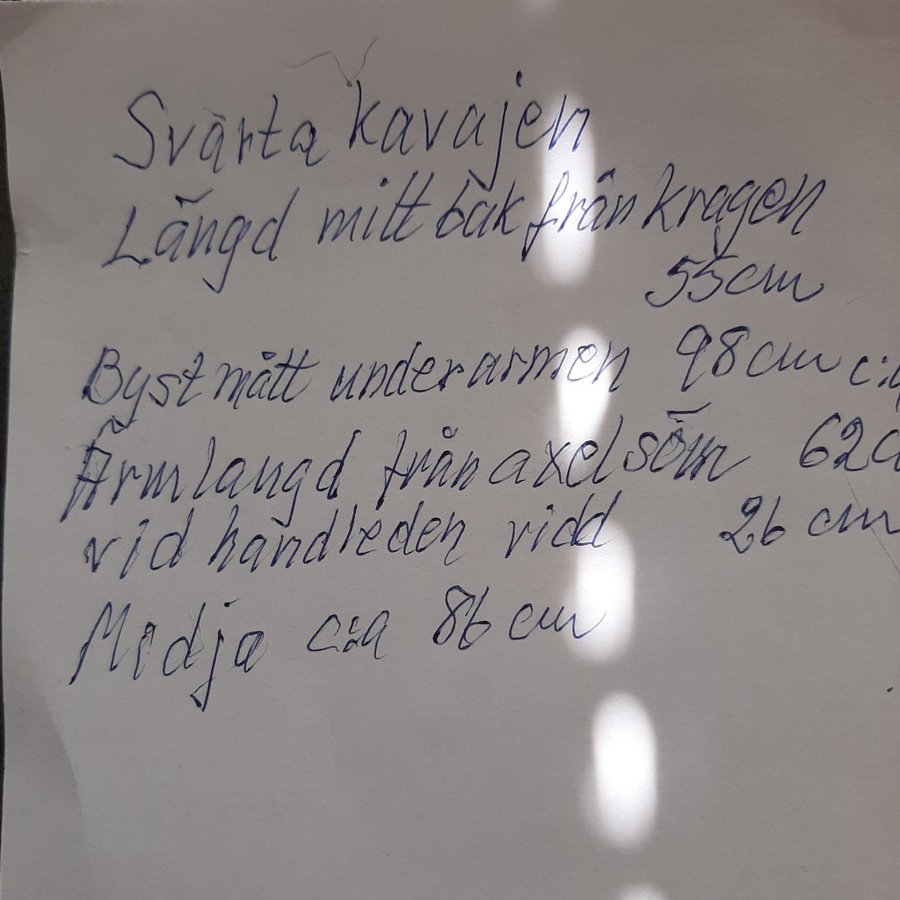 Svarta kavajen
Längd mitt bak från kragen
55cm
Byst mått under armen 98cm c:a
Ärmlangd från axelsöm 62c
vid handleden vidd 26 cm
Midja c:a 86 cm